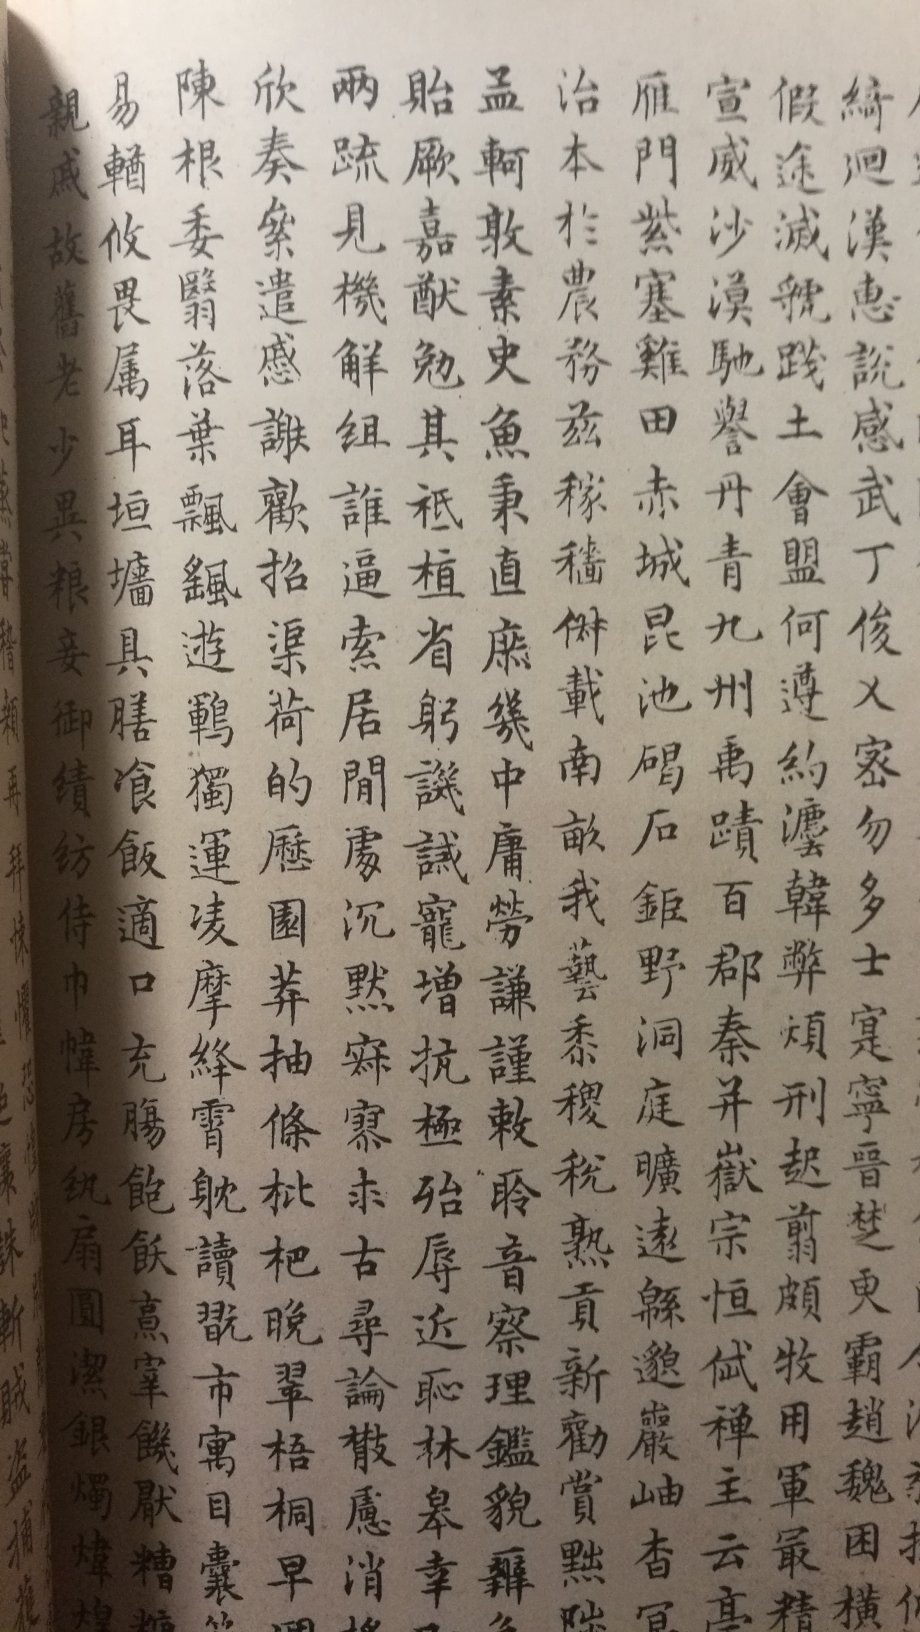 綺迴漢惠說感武丁俊乂密勿多士寔寧晉楚更霸趙魏困橫
假途滅虢踐土會盟何遵約灋韓弊煩刑起翦頗牧用軍最精
宣威沙漠馳譽丹青九州禹蹟百郡秦并嶽宗恒岱禪主云亭
雁門紫塞雞田赤城昆池碣石鉅野洞庭曠遠緜邈巖岫杳冥
治本於農務茲稼穡俶載南畝我藝黍稷稅熟貢新勸賞黜陟
孟軻敦素史魚秉直庶幾中庸勞謙謹敕聆音察理鑑貌辨色
貽厥嘉猷勉其祗植省躬譏誡寵增抗極殆辱近恥林皋幸
兩疏見機解組誰逼索居閒處沉默寂寥求古尋論散慮消
欣奏絫遣慼謝歡招渠荷的歷園莽抽條枇杷晚翠梧桐早
陳根委翳落葉飄颻遊鵾獨運凌摩絳霄耽讀翫市寓目囊
易輶攸畏属耳垣墻具膳飡飯適口充腸飽飫烹宰饑厭糟糠
親戚故舊老少異粮妾御績紡侍巾幃房紈扇圓潔銀燭煒煌